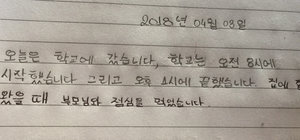 2018년 04월 03일
오늘은 학교에 갔습니다, 학교는 오전 8시에
시작했습니다 그리고 오후 4시에 끝했습니다. 집에
왔을 때 부모님와 점심을 먹었습니다.